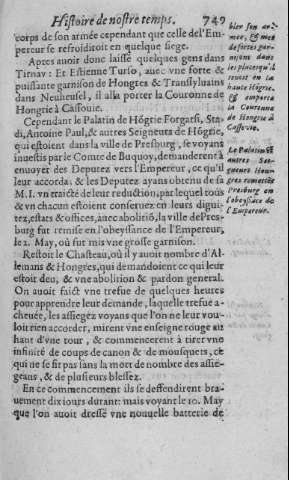 Histoire de nostre temps. 749
corps de son armée cependant que celle del'Em-
pereur se refroidiroit en quelque siege.
Apres auoir donc laissé quelques gens dans
Tirnav: Et Estienne Turso, auec vne forte &
puissante garnison de Hongres & Transsyluains
dans Neuheusel, il alla porter la Couronne de
Hongrie à Cassouie.
Cependant le Palatin de Hõgrie Forgats, Sta-
di, Antoine Paul, & autres Seigneurs de Hõgrie,
qui estoient dans la ville de Presburg, se voyans
inuestis par le Comte de Buquoy, demanderent à
enuoyer des Deputez vers l'Empereur, ce qu'il
leur accorda. & les Deputez ayans obtenu de sa
M.I. vn traicté de leur reduction, par lequel tous
& vn chacun estoient conseruez en leurs digui-
tez, estats & offices, auec abolitiõ, la ville de Pres-
burg fut remise en l'obeyssance de l'Empereur,
le 2. May, où fut mis vne grosse garnison.
Restoit le Chasteau, où il y auoit nombre d'Al-
lemans & Hongres, qui demandoient ce qui leur
estoit deu, & vne abolition & pardon general.
On auoit faict vne tresue de quelques heures
pour apprendre leur demande, laquelle tresue a-
cheuée, les assiegez voyans que l'on ne leur vou-
loit rien accorder, mirent vne enseigne rouge au
haut d'vne tour, & commencerent à tirer vne
infinité de coups de canon & de mousquets, ce
qui ne se fit pas sans la mort de nombre des assie-
geans, & de plusieurs blessez.
En ce commencement ils se deffendirent bra-
uement dix iours durant: mais voyant le 10. May
que l'on auoit dressé vne nouuelle batterie de
bler son ar-
mée, & met
de fortes gar-
nisons dans
les places qu'il
tenoit en la
haute Hõgrie.
& emporta
la Couronne
de Hongrie à
Cassouie.
Le Palatin &
autres Sei-
gneurs Hon-
gres remettẽt
Presburg en
l'obeyssãce de
l'Empereur.